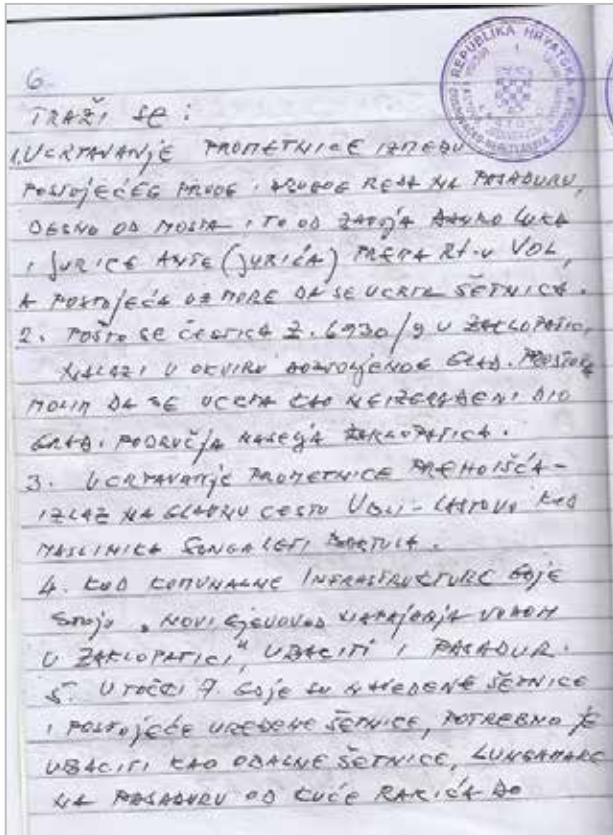 REPUBLIKA HRVATSKA
6.
TRAŽI SE:
1. UCRTAVANJE PROMETNICE IZMEĐU
POSTOJEĆEG PRVOG I DRUGOG REDA NA PASADURU,
DESNO OD MOSTA I TO OD LUKA
I JURICE ANTE (JURIĆA) PREMA RT-U VOL,
A POSTOJEĆA UZ MORE DA SE UCRTA ŠETNICA.
2. POŠTO SE ČESTICA Z. 6930/9 U ZAKLOPATIC,
NALAZI U OKVIRU DOZVOLJENOG GRAĐ. PROSTORA
MOLIM DA SE UCRTA KAO NEIZGRAĐENI DIO
GRAĐ. PODRUČJA NASELJA ZAKLOPATICA.
3. UCRTAVANJE PROMETNICE PREHOIŠĆA-
IZLAZ NA GLAVNU CESTU UBLI-LASTOVO KOD
MASLINIKA
4. KOD KOMUNALNE INFRASTRUKTURE GDJE
STOJI "NOVI CJEVOVOD VODOM
U ZAKLOPATICI", UBACITI I PASADUR.
5. U TOČCI 7. GDJE SU NAVEDENE ŠETNICE
I POSTOJEĆE UREĐENE ŠETNICE, POTREBNO JE
UBACITI KAO OBALNE ŠETNICE, LUNGAMARE
NA PASADURU OD KUĆE RAKIĆA DO